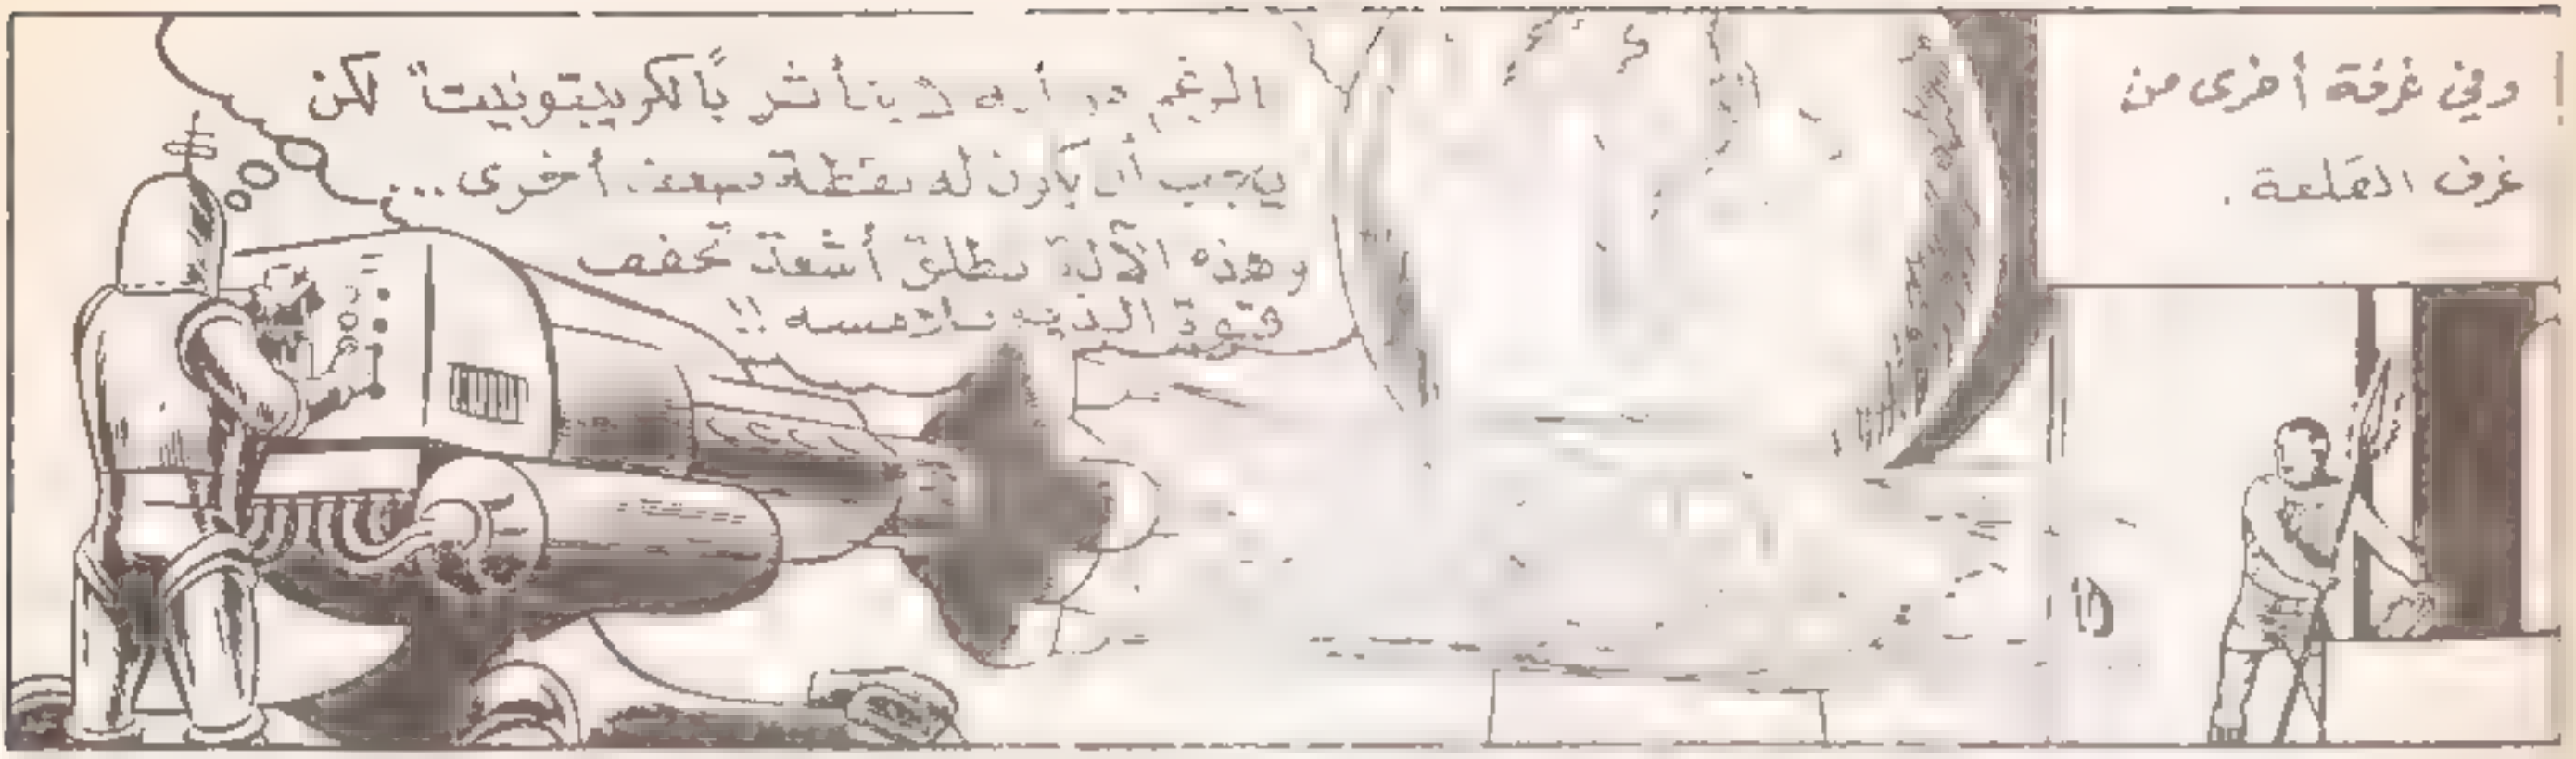 وفي غرفة أخرى من
غرف القلعة .
الرغم من أنه لا يتأثر بالكريبتونيت" لكن
يجب أن يكون له نقطة ضعف أخرى ...
وهذه الآلة تطلق أشعة تخفض
قوة الذي تلامسه !!